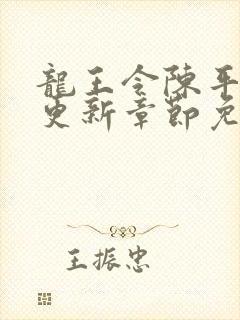 龍王令陳平
更新章節免
王振忠